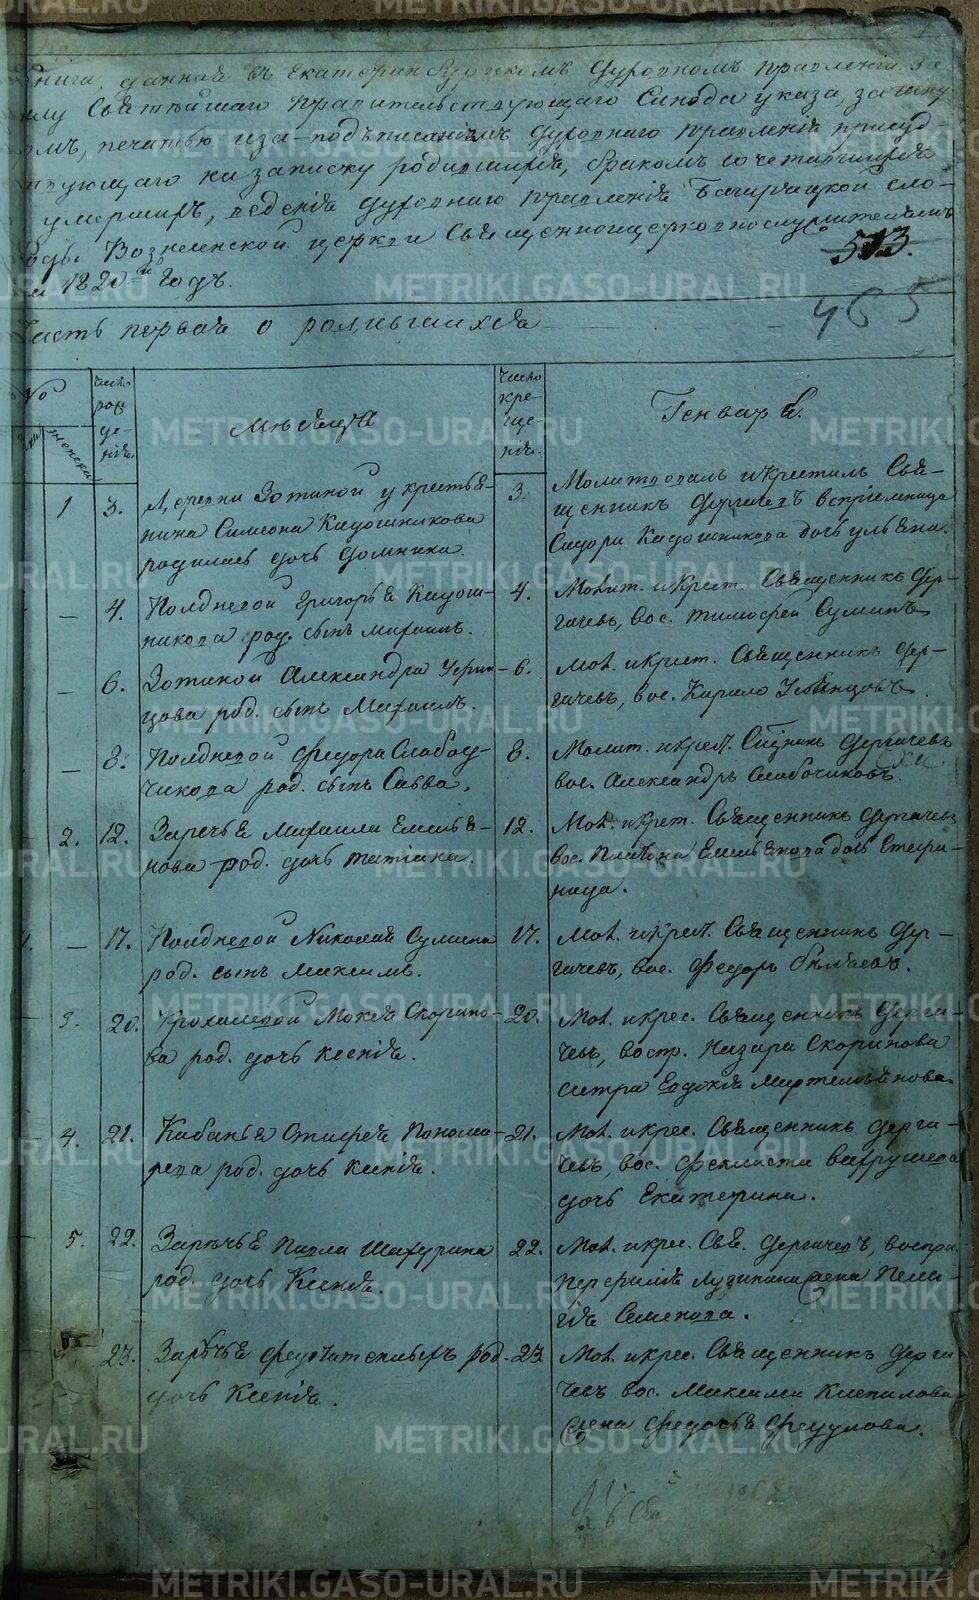 книга, данная въ Екатеринбургскомъ Духовномъ правленіи по
силу Святѣйшаго правительствующаго Синода указа, за шну
ромъ, печатью и за-подъписаніемъ Духовнаго правленія присуд
ствующаго на записку родившихся, бракомъ сочетавшихся
умершихъ, вѣденія Духовнаго правленія Багаряцкой сло
боды Вознесенской церкви Священноицерковнослужителямъ
1820й Годъ.
513.
465
Часть первая о родившихся
№
женска
число
рож
де-
нія.
мѣсяца
число
кре-
ще-
нія.
Генварь.
1
3.
Деревни Зотиной у крестья-
нина Симеона Кадошникова
родилась дочь Домника.
3.
Молитвовалъ и крестилъ Свя-
щенникъ Дергачевъ воспріемница
Сидора Кадошникова дочь ульяна.
—
4.
Полдневой Григорья Кадош-
никова род. сынъ михаилъ.
4.
Молит. и крест. Священникъ Дер-
гачевъ, вос. тимофей Суминъ
—
6.
Зотиной Александра Устин-
цова род. сынъ Михаилъ.
6.
Мол. и крест. Священникъ Дер-
гачевъ, вос. Кирило Устинцовъ.
—
8.
Полдневой Федора Слобод-
чикова род. сынъ Савва.
8.
Молит. и крест. Сщнникъ Дергачевъ
вос. Александръ Слобочиковъ.
2.
12.
Заречья Михаила Емелья-
нова род. дочь татіана.
12.
Мол. и крест. Священникъ Дергачевъ
вос. Платона Емельянова дочь Екатери-
ница.
—
17.
Полдневой Николая Сумина
род. сынъ Максимъ.
17.
Мол. и крест. Священникъ Дер-
гачевъ, вос. Федоръ Бѣляевъ.
3.
20.
Мокея Скорино-
ва род. дочь ксенія.
20.
Мол. и крес. Священникъ Дерга-
чевъ, востр. Назара Скоринова
систра Евдокія Мартемьянова.
4.
21.
Кабанья Онисфея Понома-
рева род. дочь ксенія.
21.
Мол. и крес. Священникъ Дерга-
чевъ, вос. Феклиста вахрушева
дочь Екатерина.
5.
22.
Зарѣчья Павла Шатурина
род. дочь Ксенія.
22.
Мол. и крес. Свя. Дергачевъ, воспри.
жена Пела-
гія Семенова.
23.
Зарѣчья род.
дочь Ксенія.
23
Мол. и крес. Священникъ Дерга
чевъ вос. Максима
жена Федосья Федулова.
METRIKI.GASO-URAL.RU